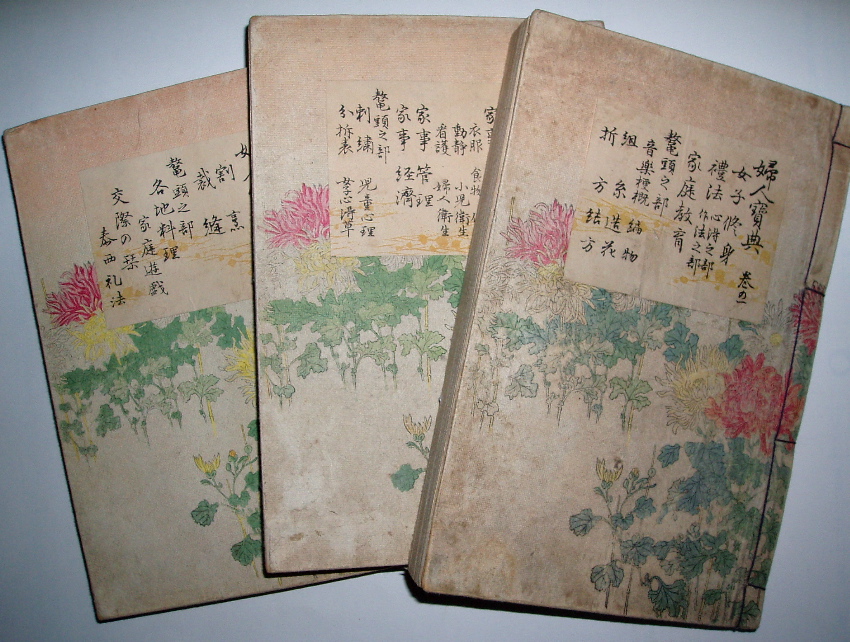 婦人寶典 卷の
女子修身
禮法 心得之部
作法之部
家庭教育
鼇頭之部
音楽梗概 編物
組糸 造花
折方 結方
家事
衣服 食物
動静 小児衛生
看護 婦人衛生
家事管理
家事経済
鼇頭之部
刺繍 児童心理
分拆表
女
割烹
裁縫
鼇頭之部
各地料理
家庭遊戯
交際の栞
泰西礼法